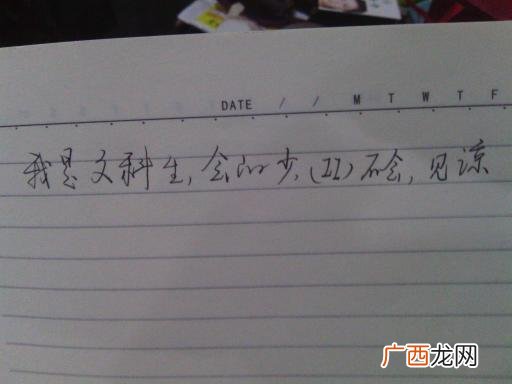 DATE / / M T W T F
我是文科生,会的少,(II)不会,见谅
广西龙网